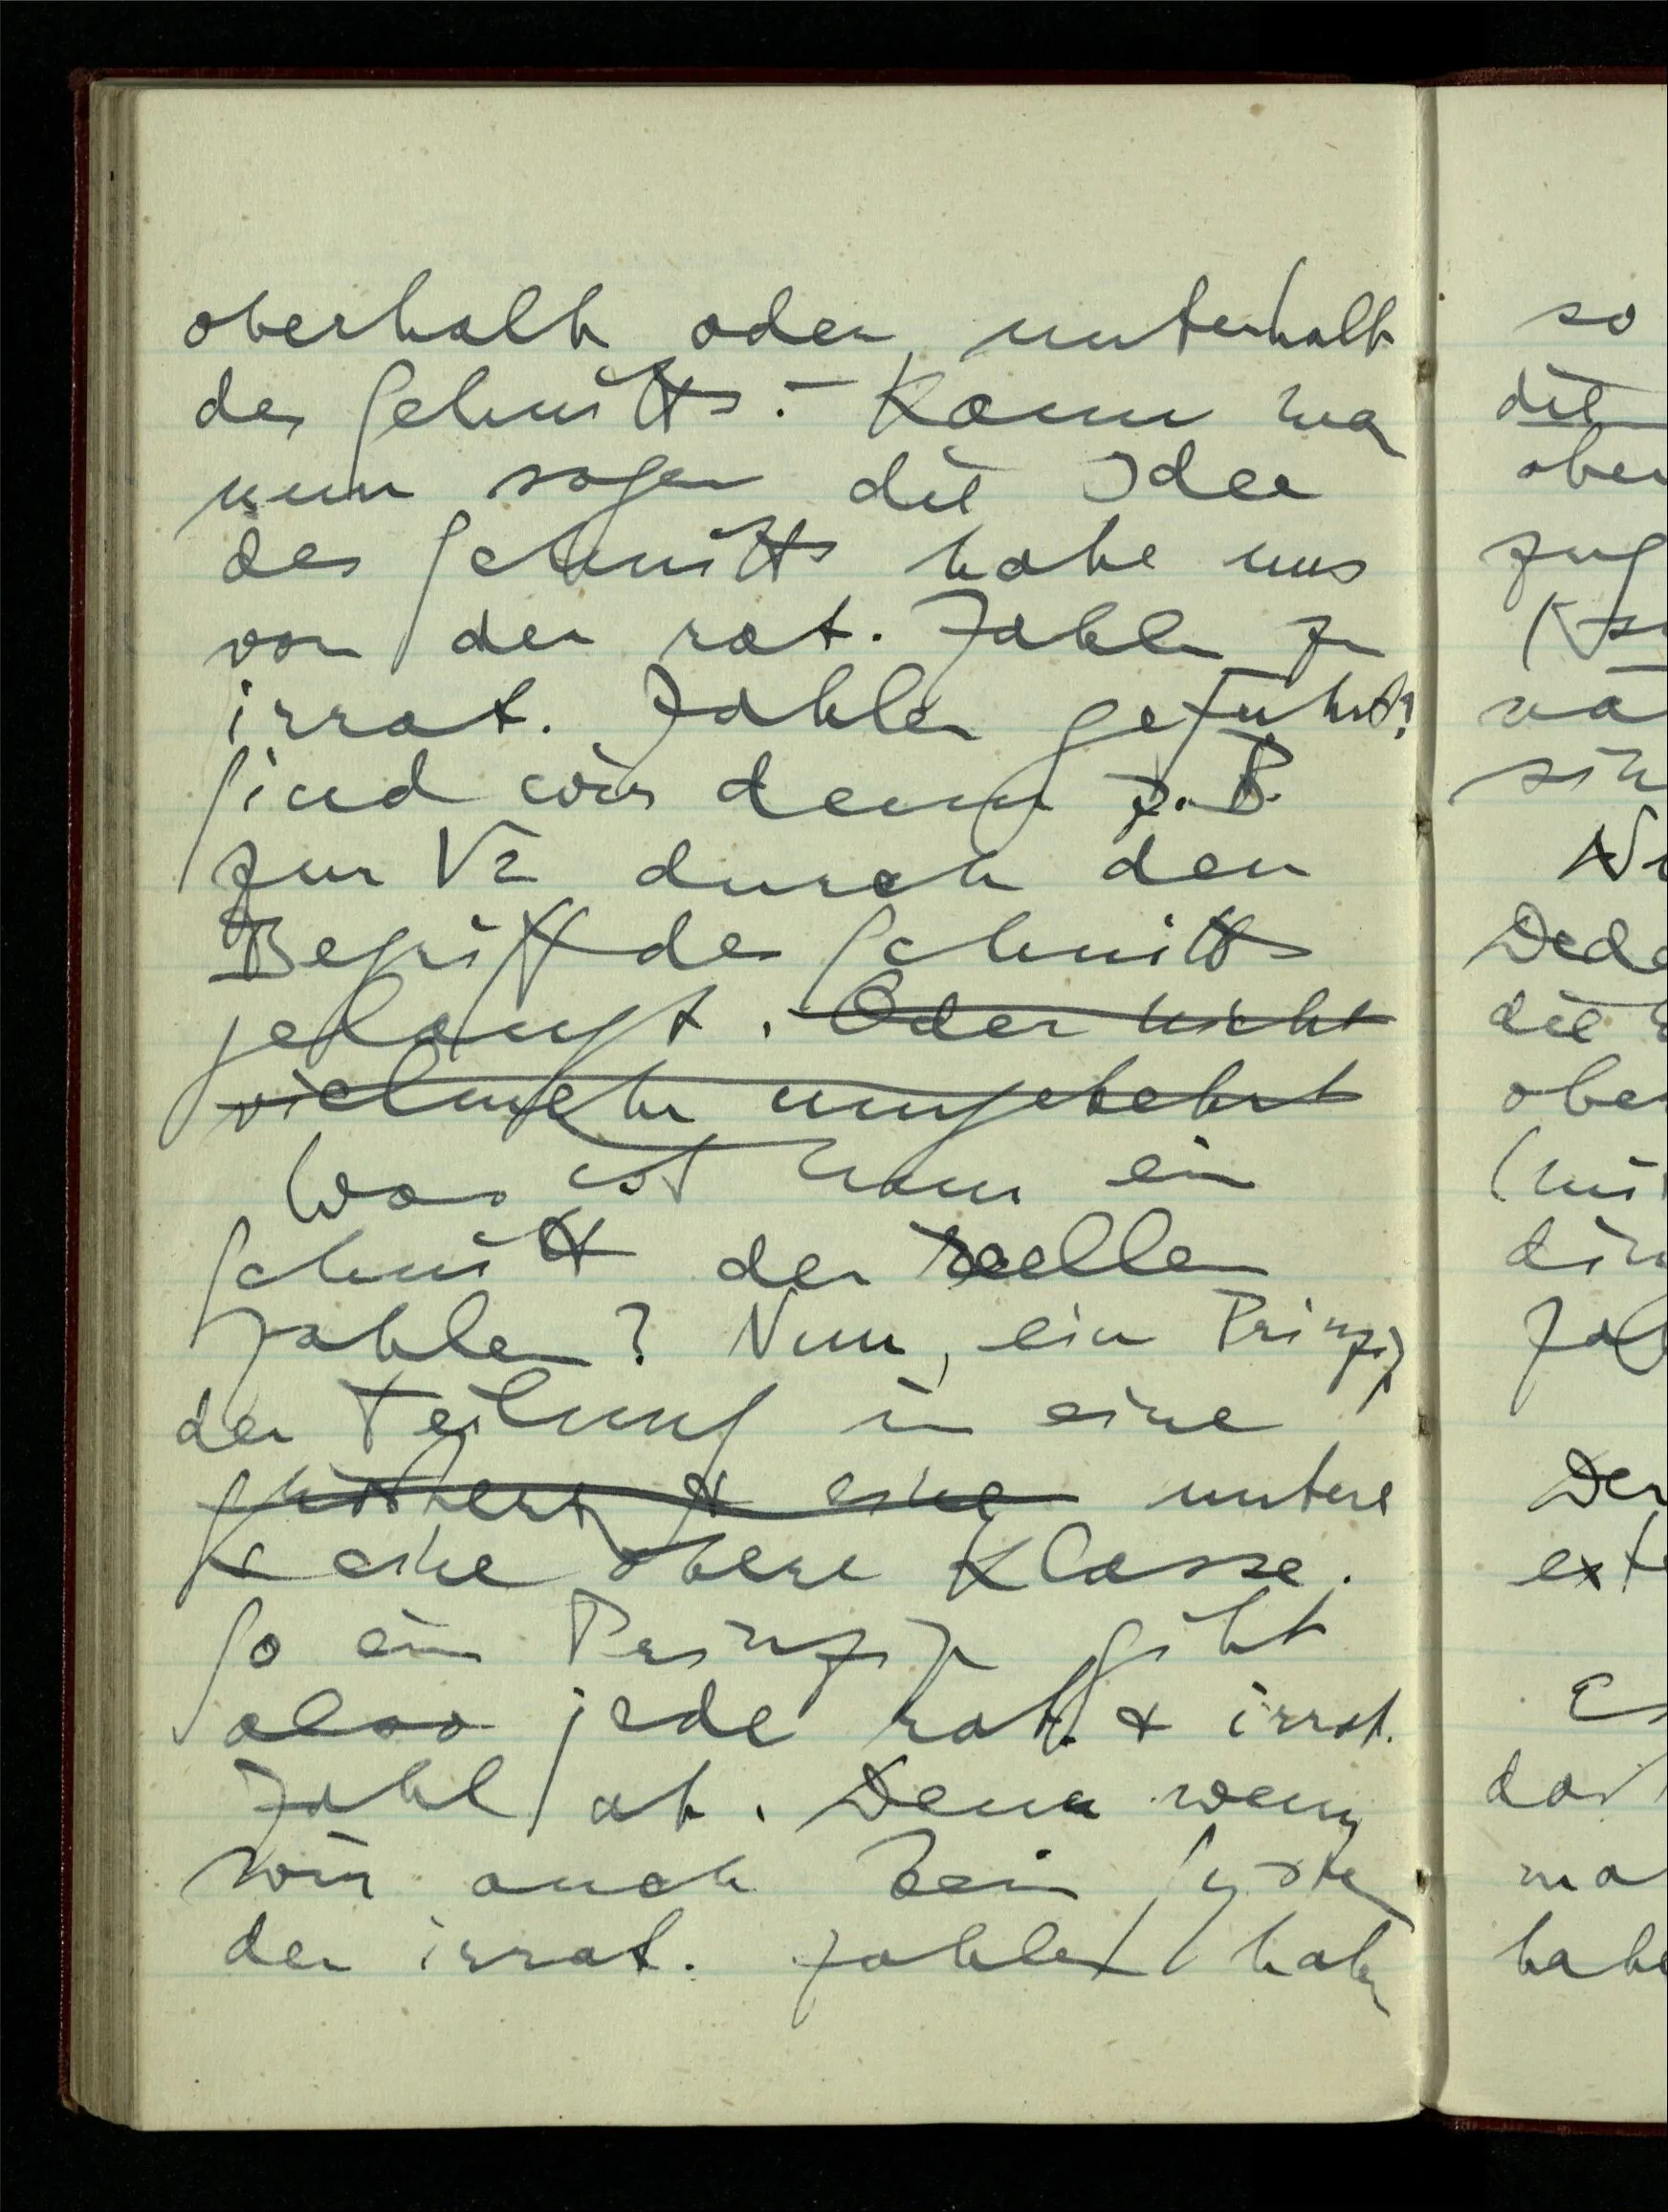 oberhalb oder unterhalb
des Schnitts. – Kann man
nun sagen die Idee
des Schnitts habe uns
von den rat. Zahlen zu
irrat. Zahlen geführt?
Sind wir denn z.B.
zur √2 durch den
Begriff des Schnitts
gelangt. Oder nicht
vielmehr umgekehrt
Was ist nun ein
Schnitt der reellen
Zahlen? Nun, ein Prinzip
der Teilung in eine
& eine untere
& eine obere Klasse.
So ein Prinzip gibt
also jede rat. & irrat.
Zahl ab. Denn wenn
wir auch kein System
der irrat. Zahlen haben
so
die
ober
zug
sin
Dede
die
ober
(mi
Zahl
Der
exte
Es
das
ma
habe